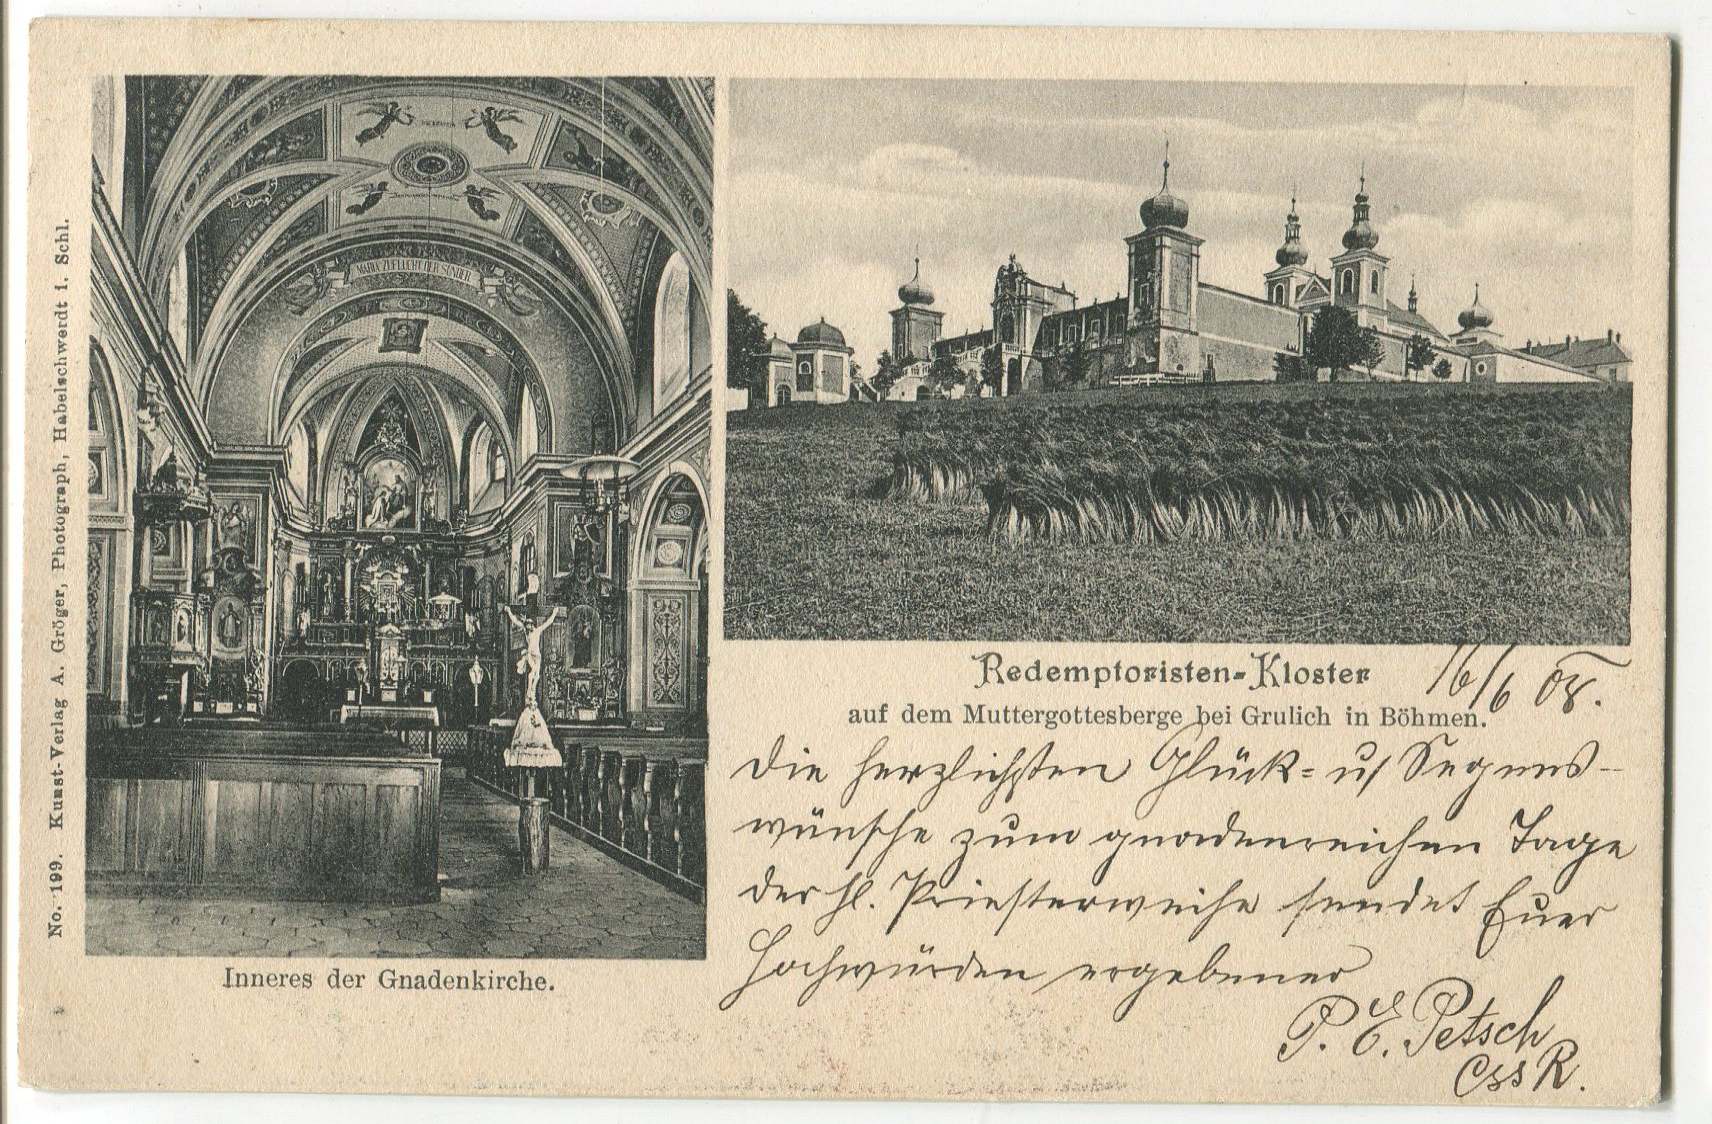 No. 199. Kunst-Verlag A. Gröger, Photograph, Habelschwerdt i. Schl.
MARIA ZUFLUCHT DER SÜNDER
Inneres der Gnadenkirche.
Redemptoristen-Kloster
auf dem Muttergottesberge bei Grulich in Böhmen.
16/6 08.
Die herzlichsten Glück- u/ Segens-
wünsche zum gnadenreichen Tage
der hl. Priesterweihe sendet Euer
Hochwürden ergebener
P. E. Petsch
CssR.